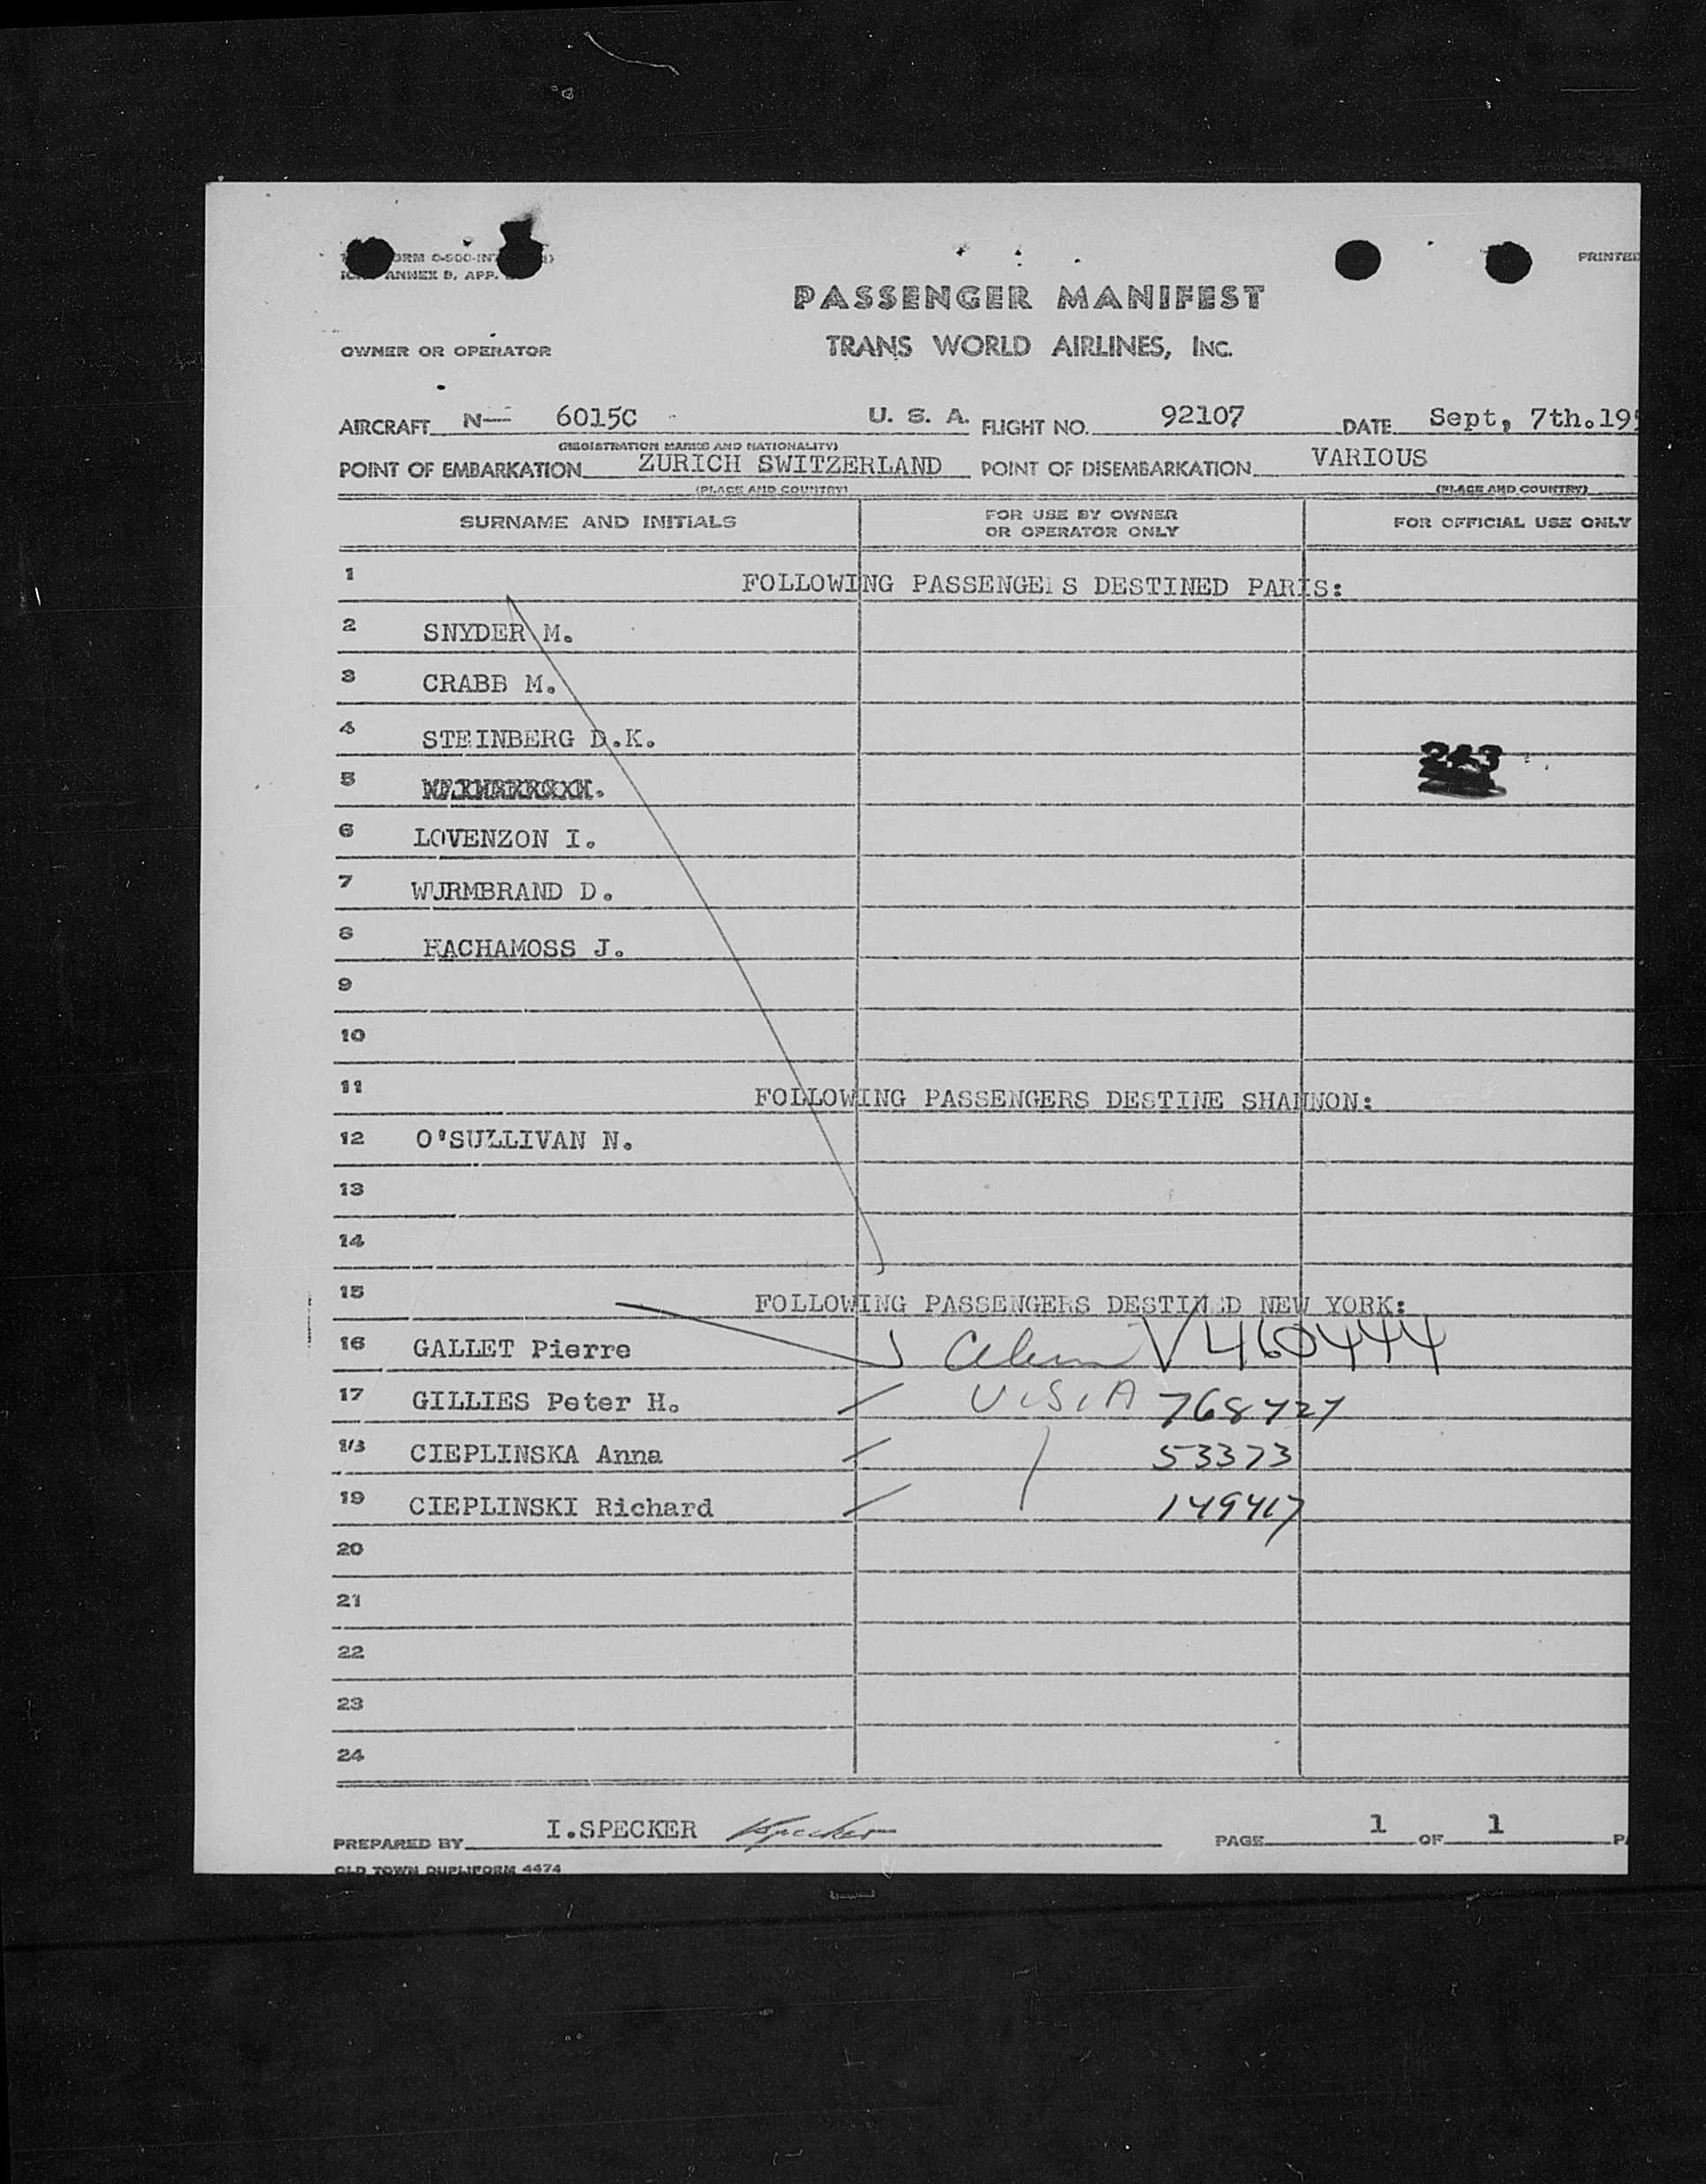 ORM O-500-INT
ANNEX 9, APP.
PRINTED
PASSENGER MANIFEST
OWNER OR OPERATOR TRANS WORLD AIRLINES, INC.
AIRCRAFT N— 6015C U. S. A. FLIGHT NO. 92107 DATE Sept, 7th.195
(REGISTRATION MARKS AND NATIONALITY)
POINT OF EMBARKATION ZURICH SWITZERLAND POINT OF DISEMBARKATION VARIOUS
(PLACE AND COUNTRY) (PLACE AND COUNTRY)
SURNAME AND INITIALS FOR USE BY OWNER OR OPERATOR ONLY FOR OFFICIAL USE ONLY
1 FOLLOWING PASSENGERS DESTINED PARIS:
2 SNYDER M.
3 CRABB M.
4 STEINBERG D.K.
243
5
6 LOVENZON I.
7 WURMBRAND D.
8 HACHAMOSS J.
9
10
11 FOLLOWING PASSENGERS DESTINE SHANNON:
12 O'SULLIVAN N.
13
14
15 FOLLOWING PASSENGERS DESTINED NEW YORK:
16 GALLET Pierre Alien V460444
17 GILLIES Peter H. U.S.A 768727
18 CIEPLINSKA Anna 53373
19 CIEPLINSKI Richard 149417
20
21
22
23
24
PREPARED BY I.SPECKER ISpecker PAGE 1 OF 1 PA
OLD TOWN DUPLIFORM 4474